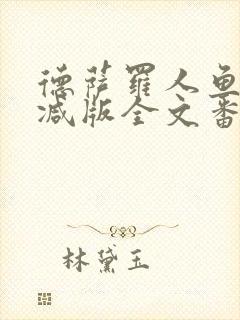 德萨罗人鱼
减版全文番
林黛玉